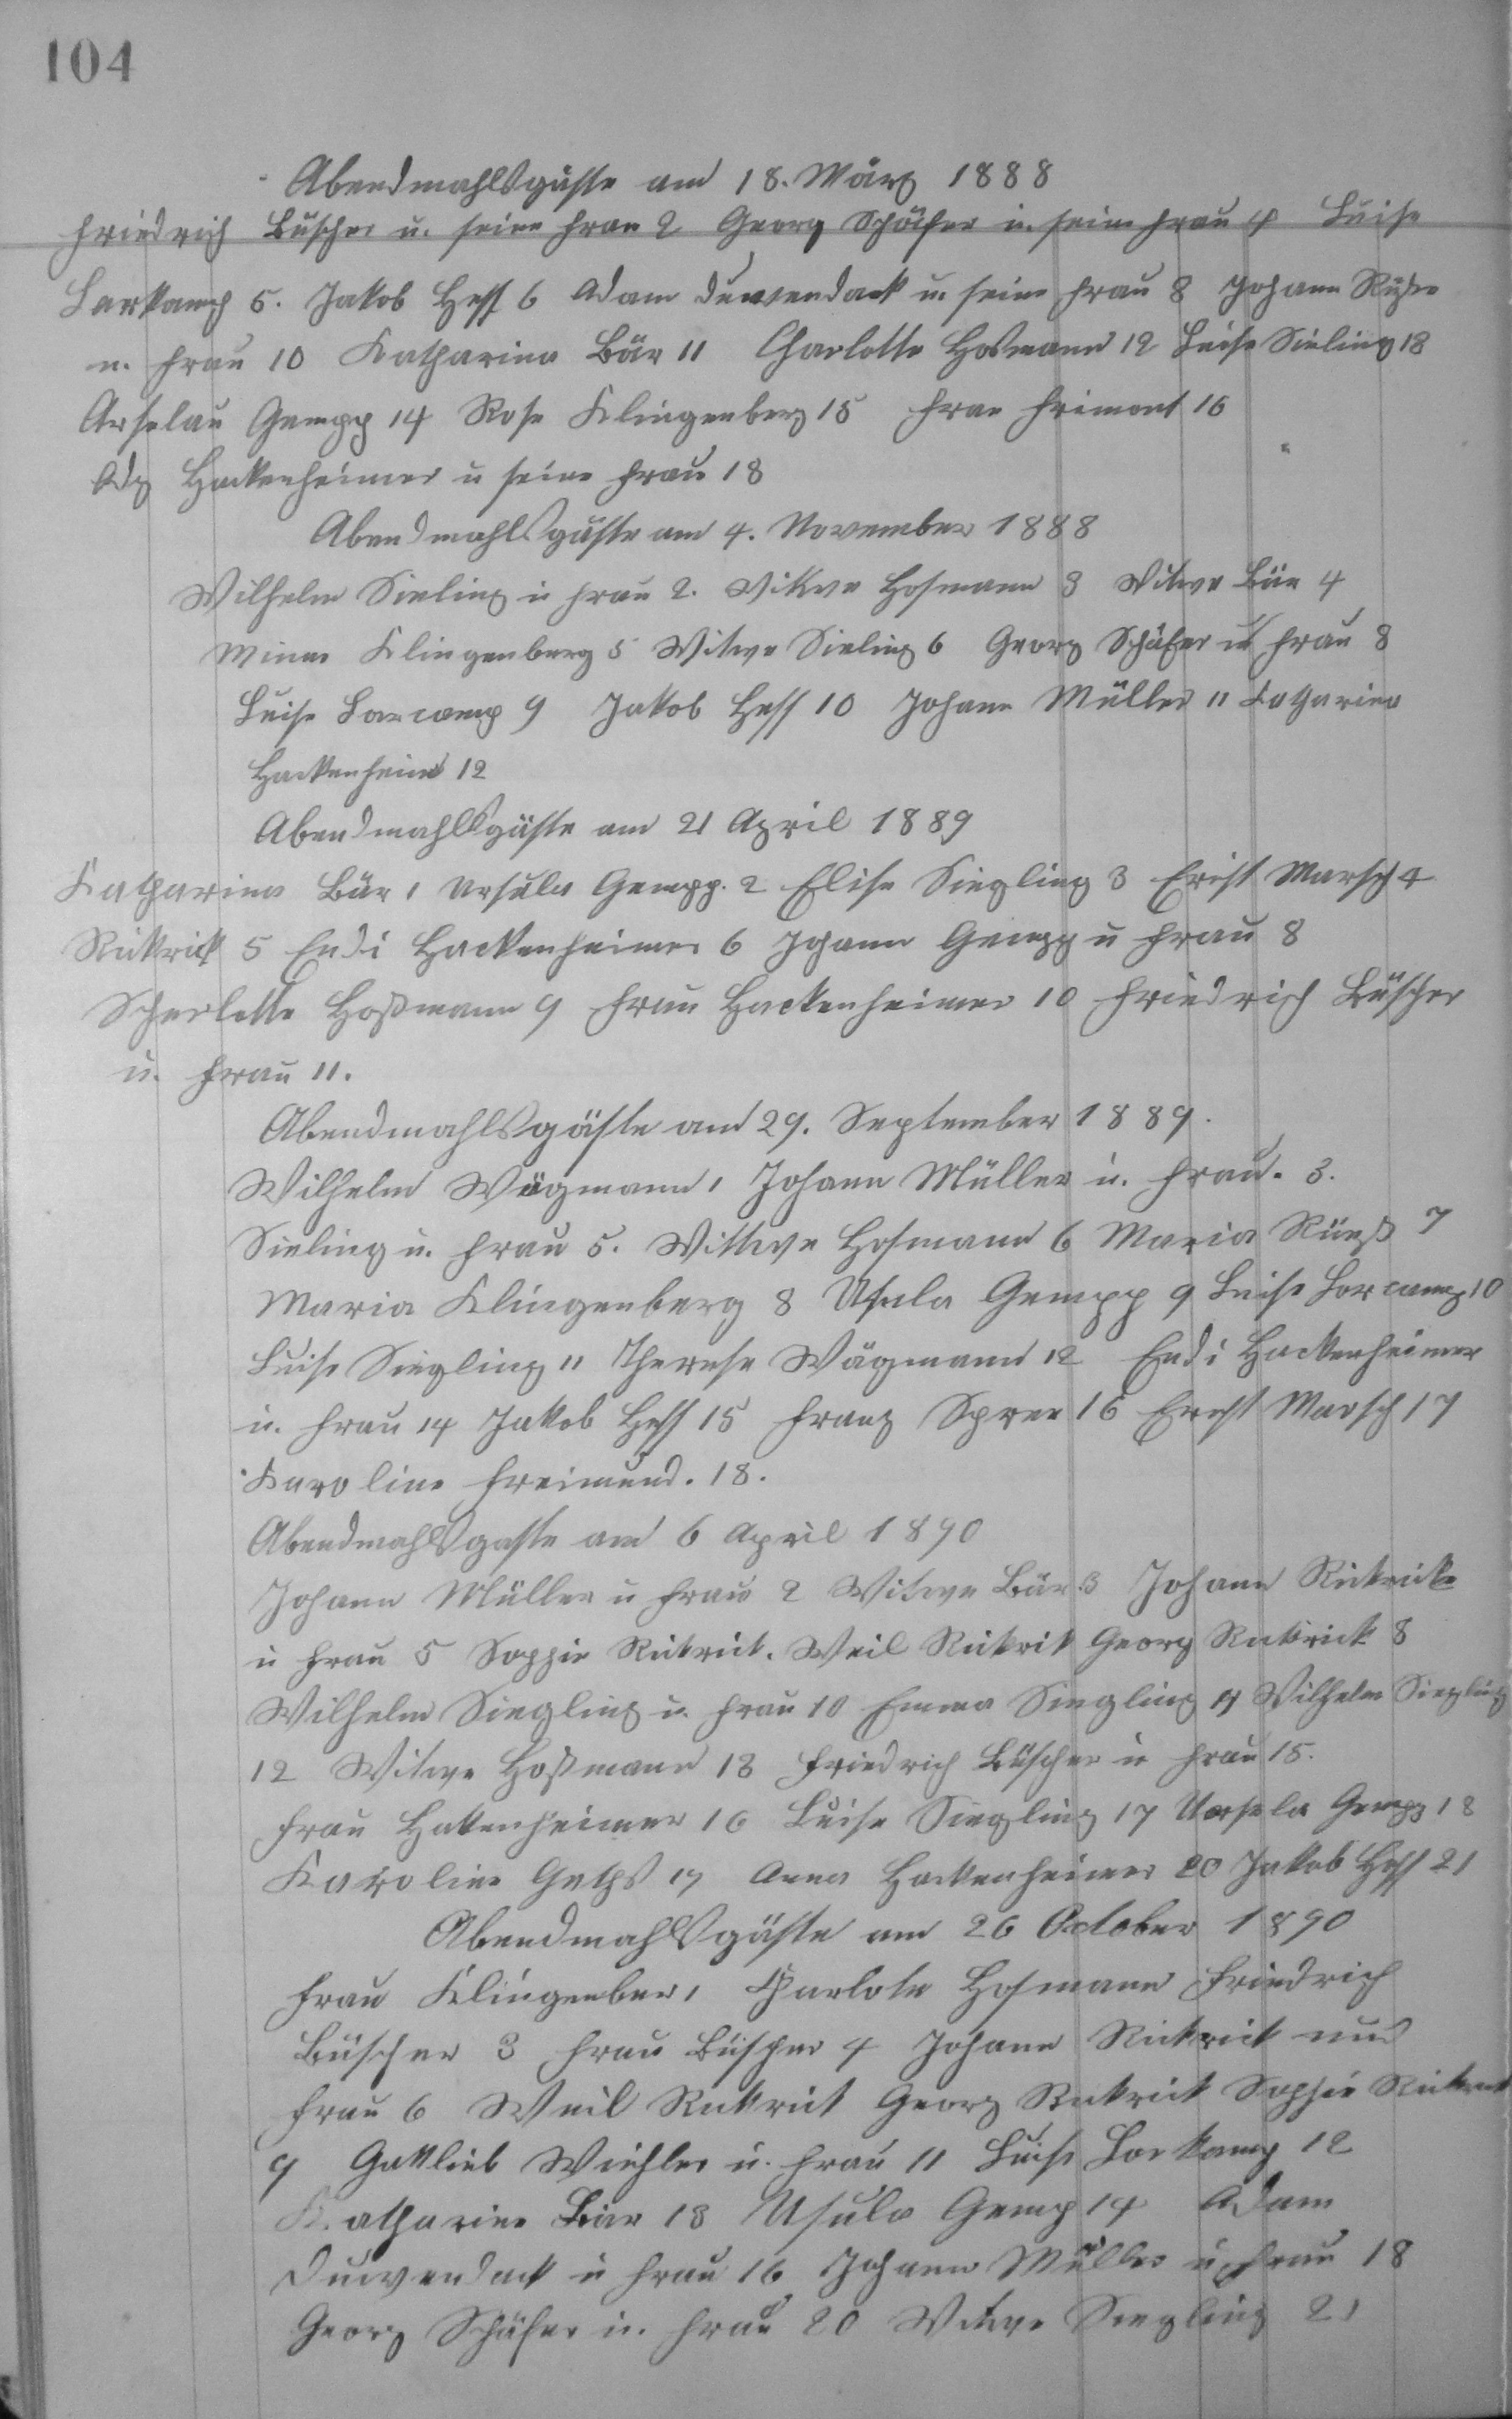 104
Abendmahlsgäste am 18. März 1888
Friedrich Büscher u. seine Frau 2 Georg Schäfer u. seine Frau 4 Luise
Larkamp 5. Jakob Hess 6 Adam Duwendack u. seine Frau 8 Johann
u. Frau 10 Katharina Bär 11 Charlotte Hosmann 12 Luise Sieling 13
Gempp 14 Rosa Klingenberg 15 Frau Frimont 16
Hackenheimer u seine Frau 18
Abendmahlsgäste am 4. November 1888
Wilhelm Sieling u Frau 2. Witwe Hosmann 3 Witwe Bär 4
Minna Klingenberg 5 Witwe Sieling 6 Georg Schäfer u Frau 8
Luise Lorcamp 9 Jakob Hess 10 Johann Müller 11 Katharina
Hackenheim 12
Abendmahlsgäste am 21 April 1889
Katharina Bär 1 Ursula Gempp. 2 Elise Siegling 3 Ernst Marsch 4
Rickrick 5 Endi Hackenheimer 6 Johann Gempp u Frau 8
Scherlotte Hoßmann 9 Frau Hackenheimer 10 Friedrich Büscher
u. Frau 11.
Abendmahlsgäste am 29. September 1889.
Wilhelm Wägmann 1 Johann Müller u. Frau. 3.
Sieling u. Frau 5. Wittwe Hosmann 6 Maria 7
Maria Klingenberg 8 Usula Gempp 9 Luise Lorcamp 10
Luise Siegling 11 Therese Wägmann 12 Endi Hackenheimer
u. Frau 14 Jakob Hess 15 Franz Spree 16 Ernst Marsch 17
Karoline Freimund. 18.
Abendmahlsgaste am 6 April 1890
Johann Müller u Frau 2 Witwe Bär 3 Johann Rickrick
u Frau 5 Sophie Rickrick. Weil Rickrik Georg Rickrick 8
Wilhelm Siegling u. Frau 10 Emma Siegling 11 Wilhelm Siegling
12 Witwe Hoßmann 13 Friedrich Büscher u Frau 15.
Frau Hakenheimer 16 Luise Siegling 17 Ursela Gempp 18
Karoline 19 Anna Hackenheimer 20 Jakob Hess 21
Abendmahlsgäste am 26 October 1890
Frau Klingenber 1 Charlote Hosmann Friedrich
Büscher 3 Frau Büscher 4 Johann Rickrick und
Frau 6 Weil Rickrick Georg Rickrick Sophie Rickrick
9 Gottlieb Wiehler u. Frau 11 Luise Lorkamp 12
Katharina Bär 13 Usula Gemp 14 Adam
Duwendack u Frau 16 Johann Müller u Frau 18
Georg Schäfer u. Frau 20 Witwe Siegling 21